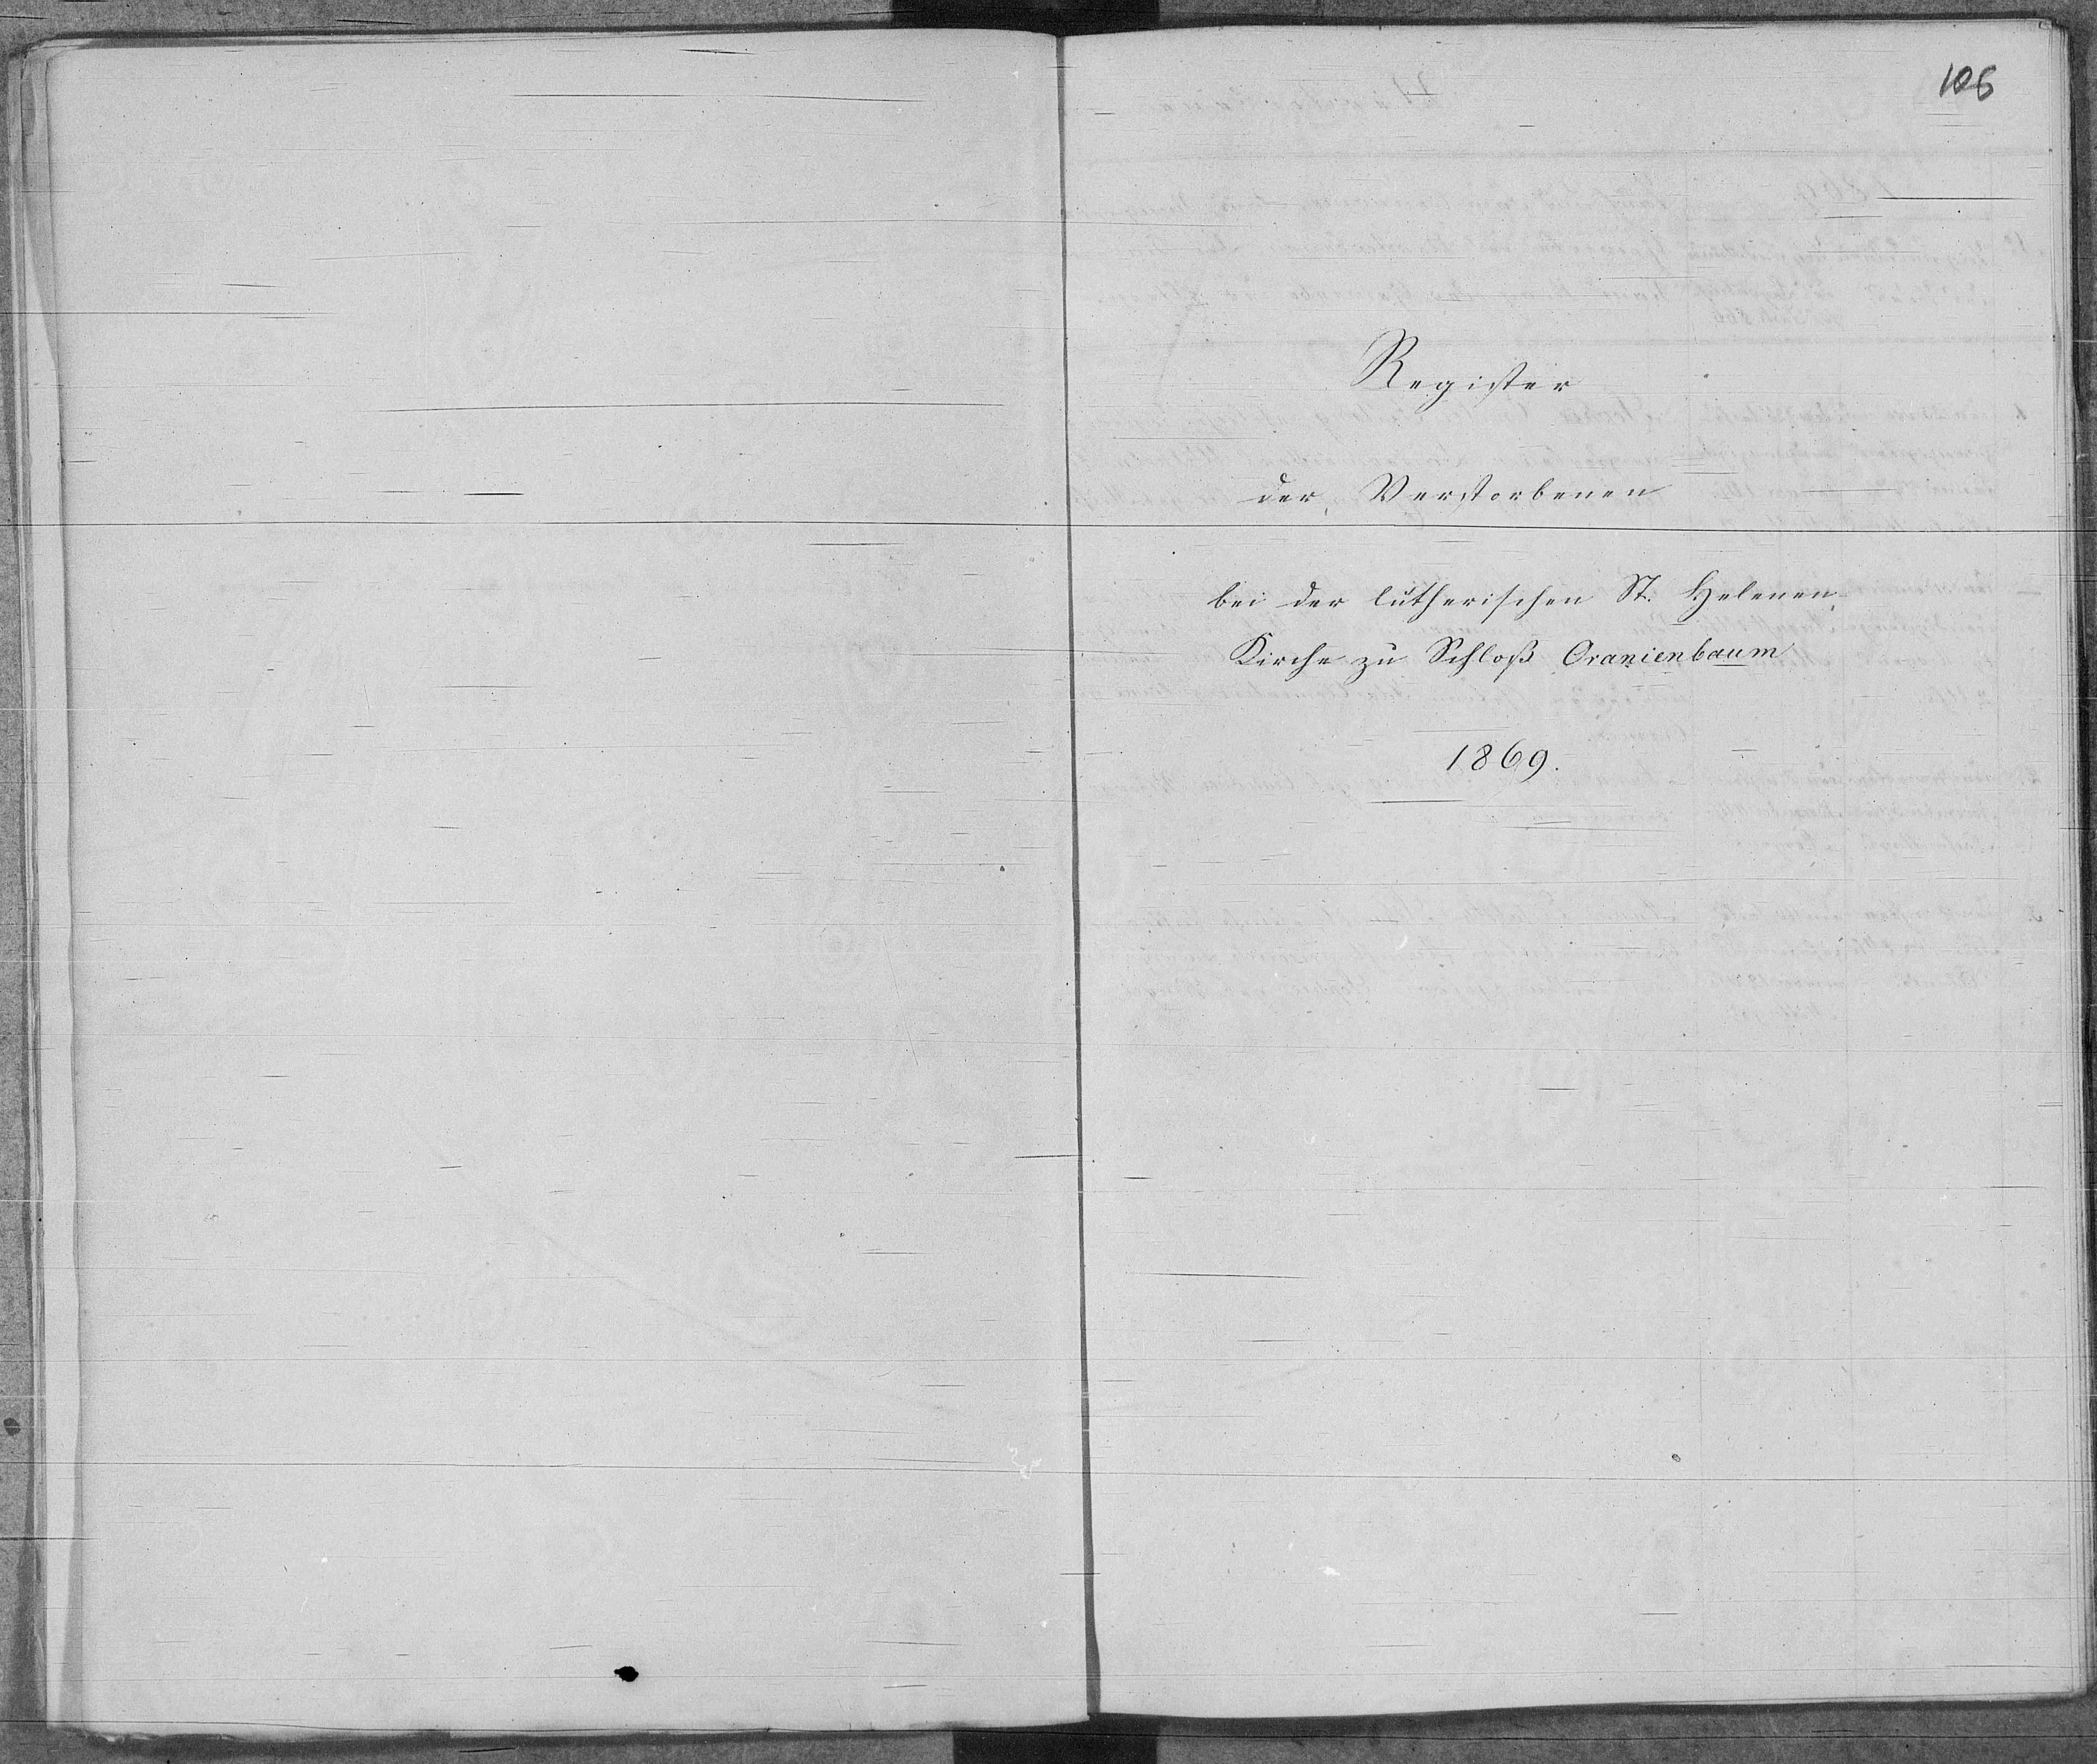 106
Register
der Verstorbenen
bei der lutherischen St. Helenen
Kirche zu Schloß Oranienbaum
1869.